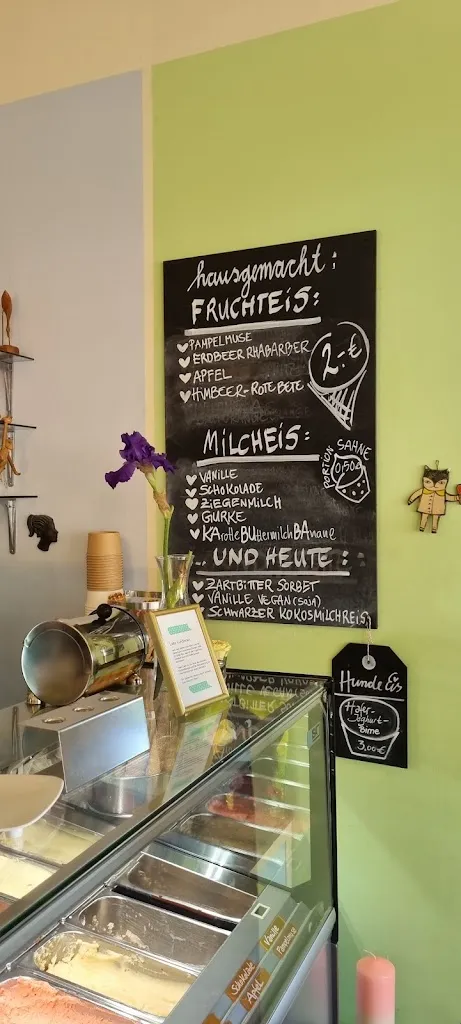 hausgemacht:
FRUCHTEIS:
PAMPELMUSE
ERDBEER RHABARBER
APFEL
HIMBEER-ROTE BETE
2.-€
MILCHEIS:
PORTION SAHNE
0,50
VANILLE
SCHOKOLADE
ZIEGENMILCH
GURKE
KArotteBUttermilchBAnane
... UND HEUTE:
ZARTBITTER SORBET
VANILLE VEGAN (Soja)
SCHWARZER KOKOSMILCHREIS
Hunde Eis
Hafer-
Joghurt-
Birne
3,00€
Vanille
Pampelmuse
Schokolade
Apfel